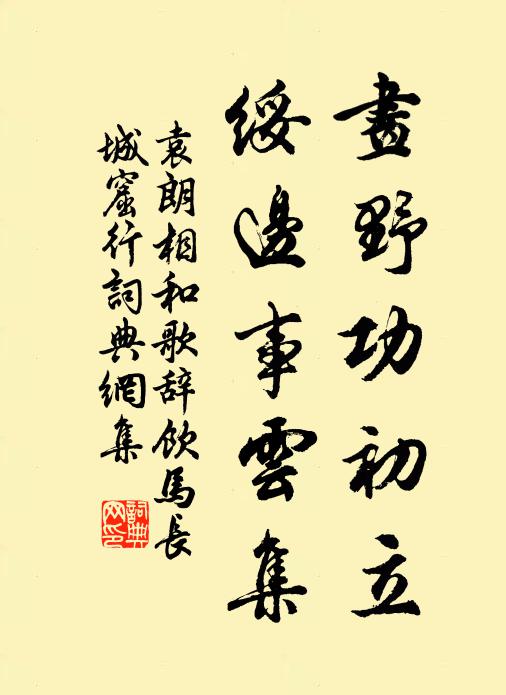 畫野功初立
綏邊事雲集
袁朗相和歌辞飲馬長
城窟行詞典網集
詞典
网印